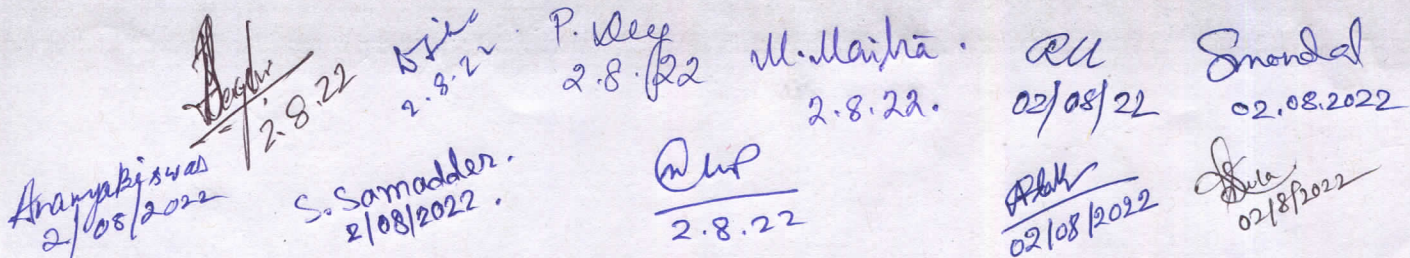 2.8.22
2.8.22
P. Dey
2.8.22
M. Maitra.
2.8.22.
02/08/22
Smondal
02.08.2022
Aranyabiswas
2/08/2022
S. Samadder.
2/08/2022.
2.8.22
02/08/2022
02/8/2022